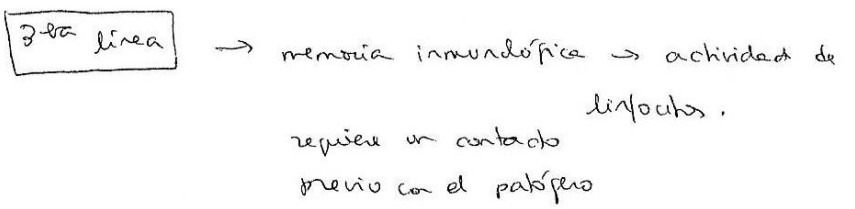 3era línea → memoria inmunológica → actividad de
linfocitos.
requiere un contacto
previo con el patógeno